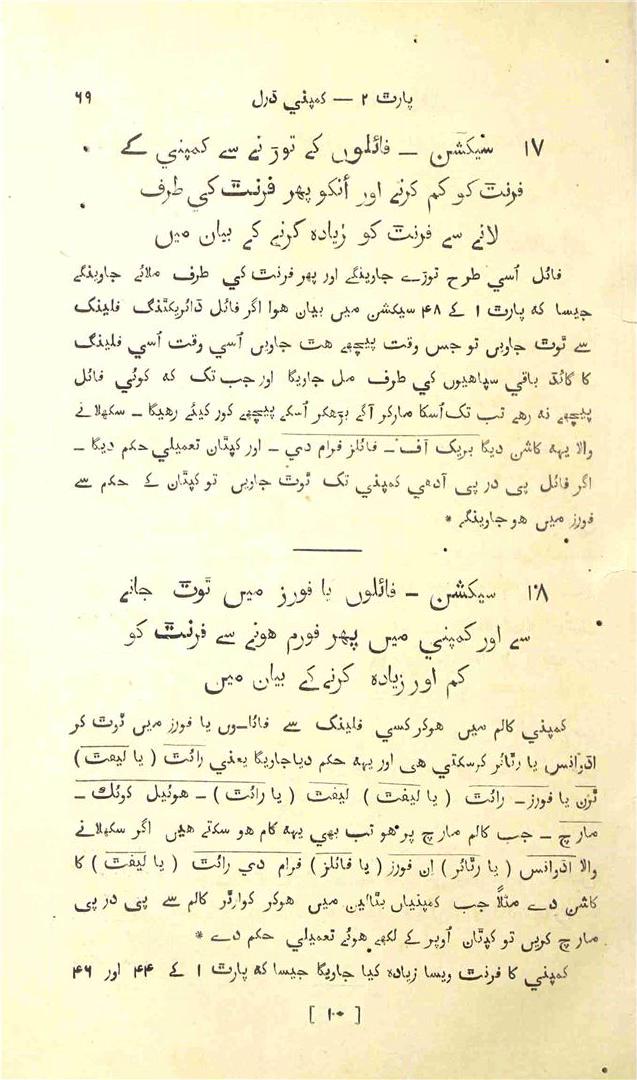 پارٹ ۲ — کمپني ڈرل ۶۹
۱۷ سیکشن — فائلوں کے توڑ نے سے کمپني کے
فرنٹ کو کم کرنے اور اُنکو پھر فرنٹ کي طرف
لانے سے فرنٹ کو زیادہ کرنیکے بیان میں
فائل اُسي طرح توڑے جاوینگے اور پھر فرنٹ کي طرف ملائے جاوینگے
جیسا کہ پارٹ ۱ کے ۴۸ سیکشن میں بیان ہوا اگر فائل ڈائریکٹنگ فلینک
سے ٹوٹ جاویں تو جس وقت پیچھے ہٹ جاویں اُسي وقت اُسي فلینگ
کا گائڈ باقي سپاهیوں کي طرف مل جاویگا اور جب تک کہ کوئي فائل
پیچھے نہ رهے تب تک اُسکا مارکر آگے بڑھکر اُسکے پیچھے کور کیئے رهیگا — سکھلانے
والا یہہ کاشن دیگا بریک آف — فائلز فرام دي — اور کپٹان تعمیلي حکم دیگا —
اگر فائل پی در پی آدهي کمپني تک ٹوٹ جاویں تو کپٹان کے حکم سے
فورز میں هو جاوینگے *
۱۸ سیکشن — فائلوں یا فورز میں ٹوٹ جانے
سے اور کمپني میں پھر فورم ہونے سے فرنٹ کو
کم اور زیادہ کرنیکے بیان میں
کمپني کالم میں هوکر کسي فلینگ سے فائلوں یا فورز میں ٹوٹ کر
اڈوانس یا رٹائر کرسکتي هی اور یہہ حکم دیاجاویگا یعني رائٹ ( یا لیفٹ )
ٹرن یا فورز — رائٹ ( یا لیفٹ ) لیفٹ ( یا رائٹ ) — هوئیل کوئک —
مارچ — جب کالم مارچ پر هو تب بھي یہہ کام هو سکتے هیں اگر سکھلانے
والا اڈوانس ( یا رٹائر ) اِن فورز ( یا فائلز ) فرام دي رائٹ ( یا لیفٹ ) کا
کاشن دے مثلاً جب کمپنیاں بٹالین میں هوکر کوارٹر کالم سے پی در پی
مارچ کریں تو کپٹان اُوپر کے لکھے هوئے تعمیلي حکم دے *
کمپني کا فرنٹ ویسا زیادہ کیا جاویگا جیسا کہ پارٹ ۱ کے ۴۴ اور ۴۶
[ ۱۰ ]